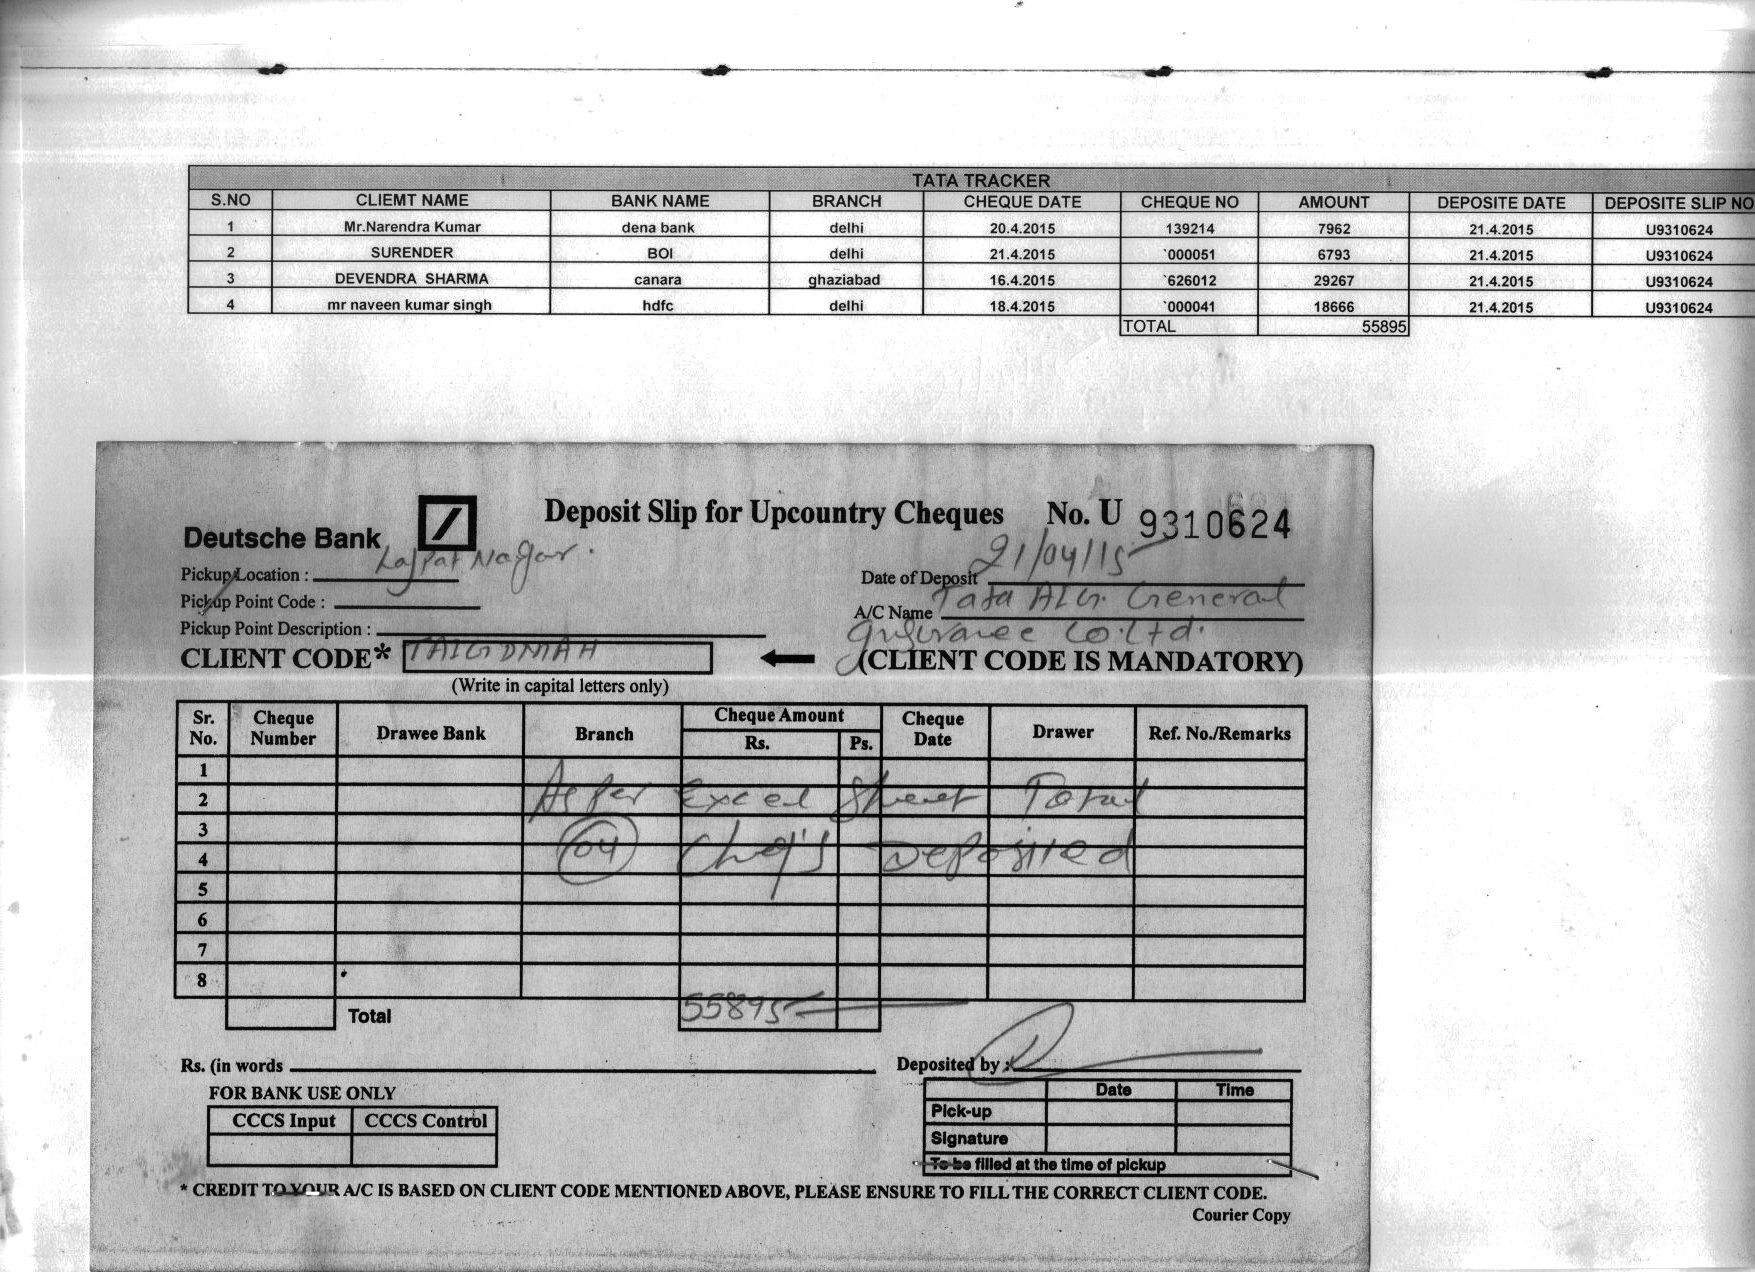 TATA TRACKER
S.NO CLIEMT NAME BANK NAME BRANCH CHEQUE DATE CHEQUE NO AMOUNT DEPOSITE DATE DEPOSITE SLIP NO
1 Mr.Narendra Kumar dena bank delhi 20.4.2015 139214 7962 21.4.2015 U9310624
2 SURENDER BOI delhi 21.4.2015 `000051 6793 21.4.2015 U9310624
3 DEVENDRA SHARMA canara ghaziabad 16.4.2015 `626012 29267 21.4.2015 U9310624
4 mr naveen kumar singh hdfc delhi 18.4.2015 `000041 18666 21.4.2015 U9310624
TOTAL 55895
Deutsche Bank
Deposit Slip for Upcountry Cheques No. U 9310624
Pickup Location : Lajpat Nagar.
Date of Deposit 21/04/15
Pickup Point Code :
A/C Name Tata AIG. General
Pickup Point Description :
Insurance Co.Ltd.
CLIENT CODE* TAIGDMAH
(CLIENT CODE IS MANDATORY)
(Write in capital letters only)
Sr. No. Cheque Number Drawee Bank Branch Cheque Amount Rs. Ps. Cheque Date Drawer Ref. No./Remarks
1
2 As Per Excel Sheet Total
3
4 04 Chq's Deposited
5
6
7
8
Total 55895
Rs. (in words
Deposited by :
FOR BANK USE ONLY
CCCS Input CCCS Control
Date Time
Pick-up
Signature
To be filled at the time of pickup
* CREDIT TO YOUR A/C IS BASED ON CLIENT CODE MENTIONED ABOVE, PLEASE ENSURE TO FILL THE CORRECT CLIENT CODE.
Courier Copy